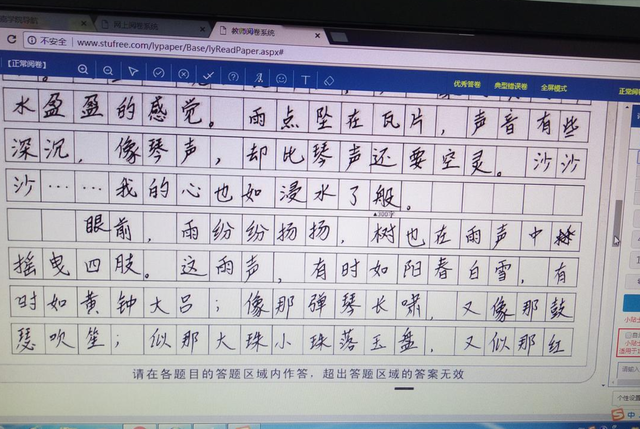 网上阅卷系统 教师阅卷系统
不安全 www.stufree.com/lypaper/Base/lyReadPaper.aspx#
【正常阅卷】 优秀答卷 典型错误卷 全屏模式 正常阅
水盈盈的感觉。雨点坠在瓦片，声音有些
深沉，像琴声，却比琴声还要空灵。沙沙
沙……我的心也如浸水了般。
▲300字
眼前，雨纷纷扬扬，树也在雨声中
摇曳四肢。这雨声，有时如阳春白雪，有
时如黄钟大吕；像那弹琴长啸，又像那鼓
瑟吹笙；似那大珠小珠落玉盘，又似那红
请在各题目的答题区域内作答，超出答题区域的答案无效
个性设置
中